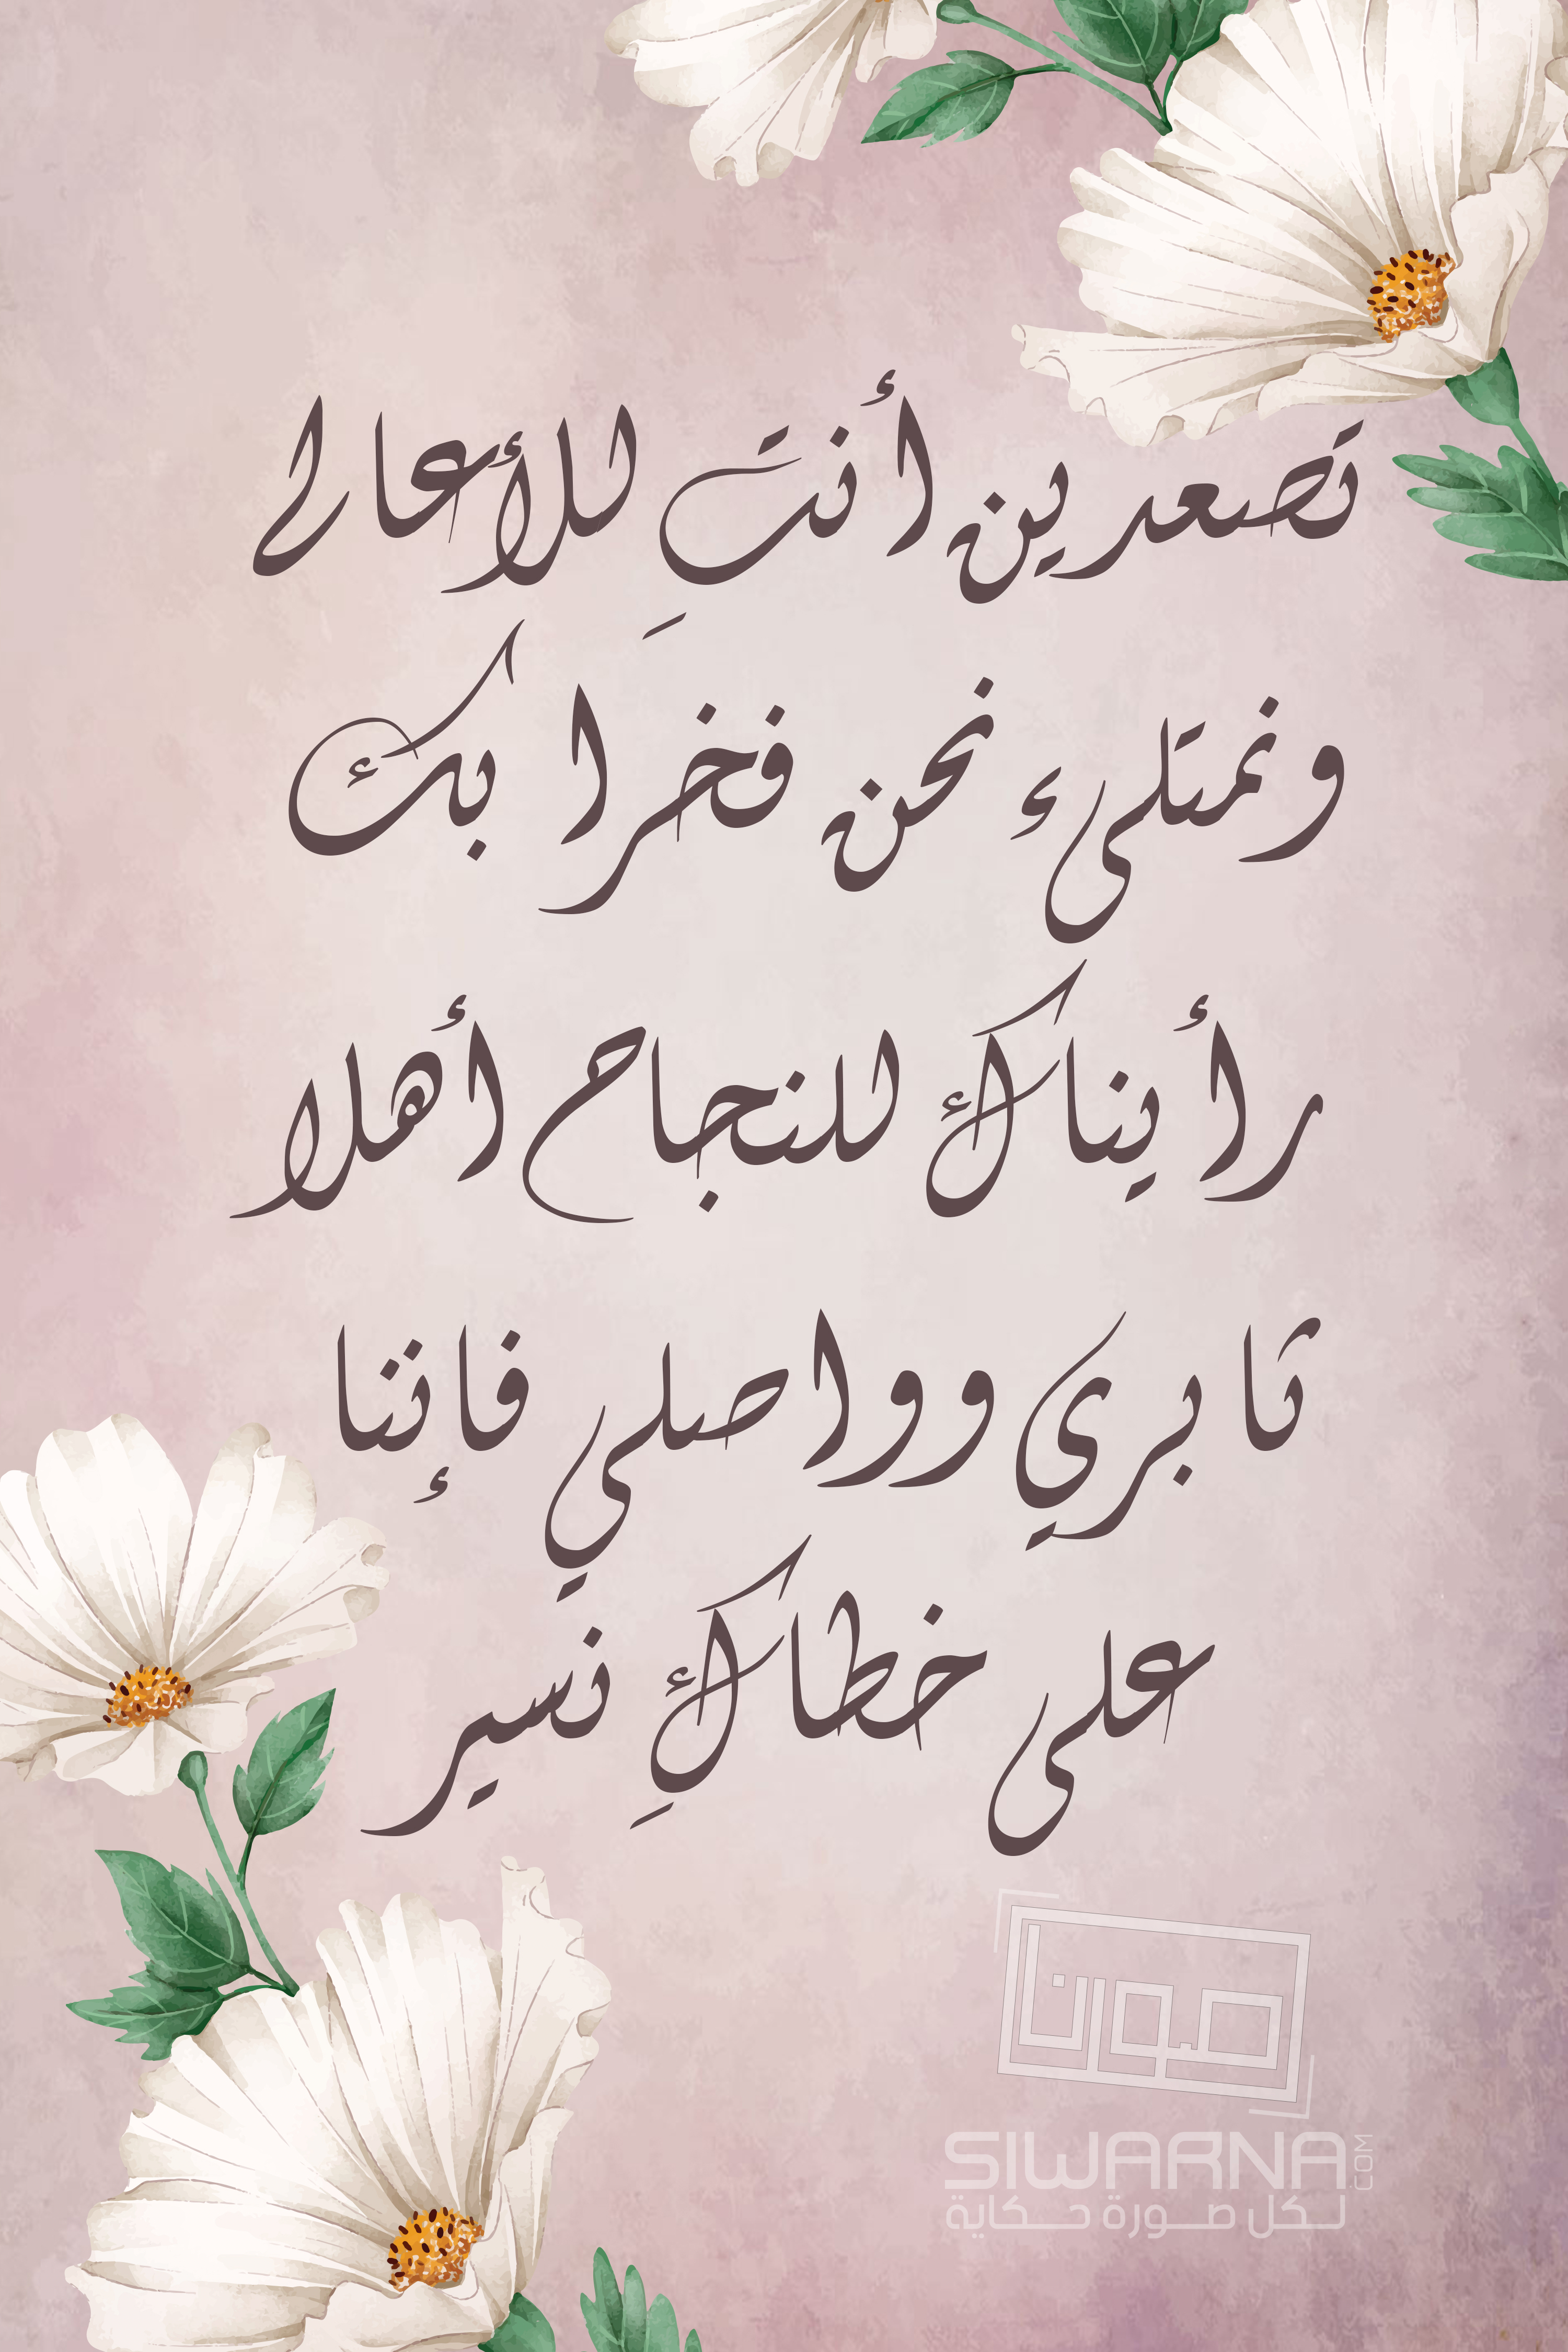 تصعدين أنتِ للأعالي
ونمتلىء نحن فخرا بك
رأيناك للنجاح أهلا
ثابري وواصلي فإننا
على خطاكِ نسير
صورنا
SIWARNA.COM
لكل صورة حكاية